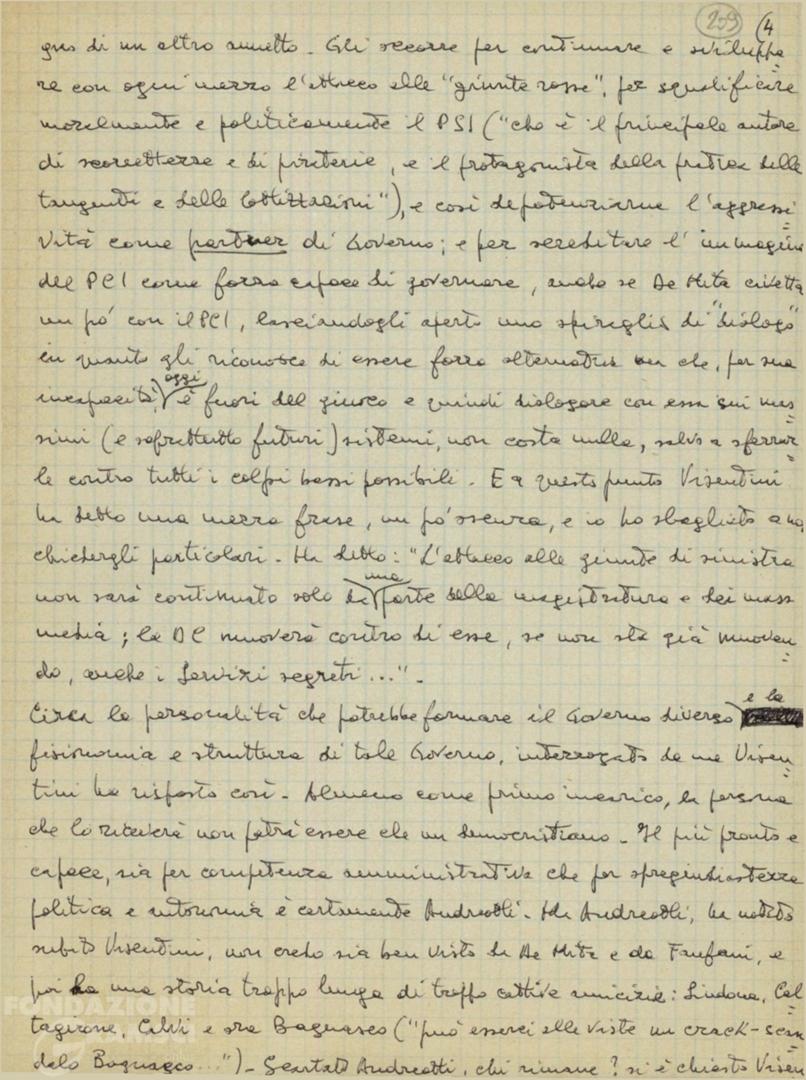 259 (4
gno di un altro annetto. Gli occorre per continuare e sviluppa
re con ogni mezzo l'attacco alle "giunte rosse", per squalificare
moralmente e politicamente il PSI ("che è il principale autore
di scorrettezze e di piraterie, e il protagonista della pratica delle
tangenti e delle lottizzazioni"), e così depotenziarne l'aggressi
vità come partner di Governo; e per screditare l'immagine
del PCI come forza capace di governare, anche se De Mita civetta
un pò con il PCI, lasciandogli aperto uno spiraglio di "dialogo"
in quanto gli riconosce di essere forza alternativa ma che, per sua
incapacità, oggi è fuori del giuoco e quindi dialogare con essa sui mas
simi (e soprattutto futuri) sistemi, non costa nulla, salvo a sferrar
le contro tutti i colpi bassi possibili. E a questo punto Visentini
ha detto una mezza frase, un pò oscura, e io ho sbagliato a no
chiedergli particolari. Ha detto: "L'attacco alle giunte di sinistra
non sarà continuato solo da una parte della magistratura e dei mass
media; la DC muoverà contro di esse, se non sta già muoven
do, anche i Servizi segreti...".
Circa la personalità che potrebbe formare il Governo diverso e la
fisionomia e struttura di tale Governo, interrogato da me Visen
tini ha risposto così. Almeno come primo incarico, la persona
che lo riceverà non potrà essere che un democristiano. Il più pronto e
capace, sia per competenza amministrativa che per spregiudicatezza
politica e autonomia è certamente Andreotti. Ma Andreotti, ha notato
subito Visentini, non credo sia ben visto da De Mita e da Fanfani, e
poi ha una storia troppo lunga di troppo cattive amicizie: Sindona, Cal
tagirone, Calvi e ora Bagnasco ("può esserci alle viste un crack-scan
dalo Bagnasco..."). Scartato Andreotti, chi rimane? si è chiesto Visen
FONDAZIONE